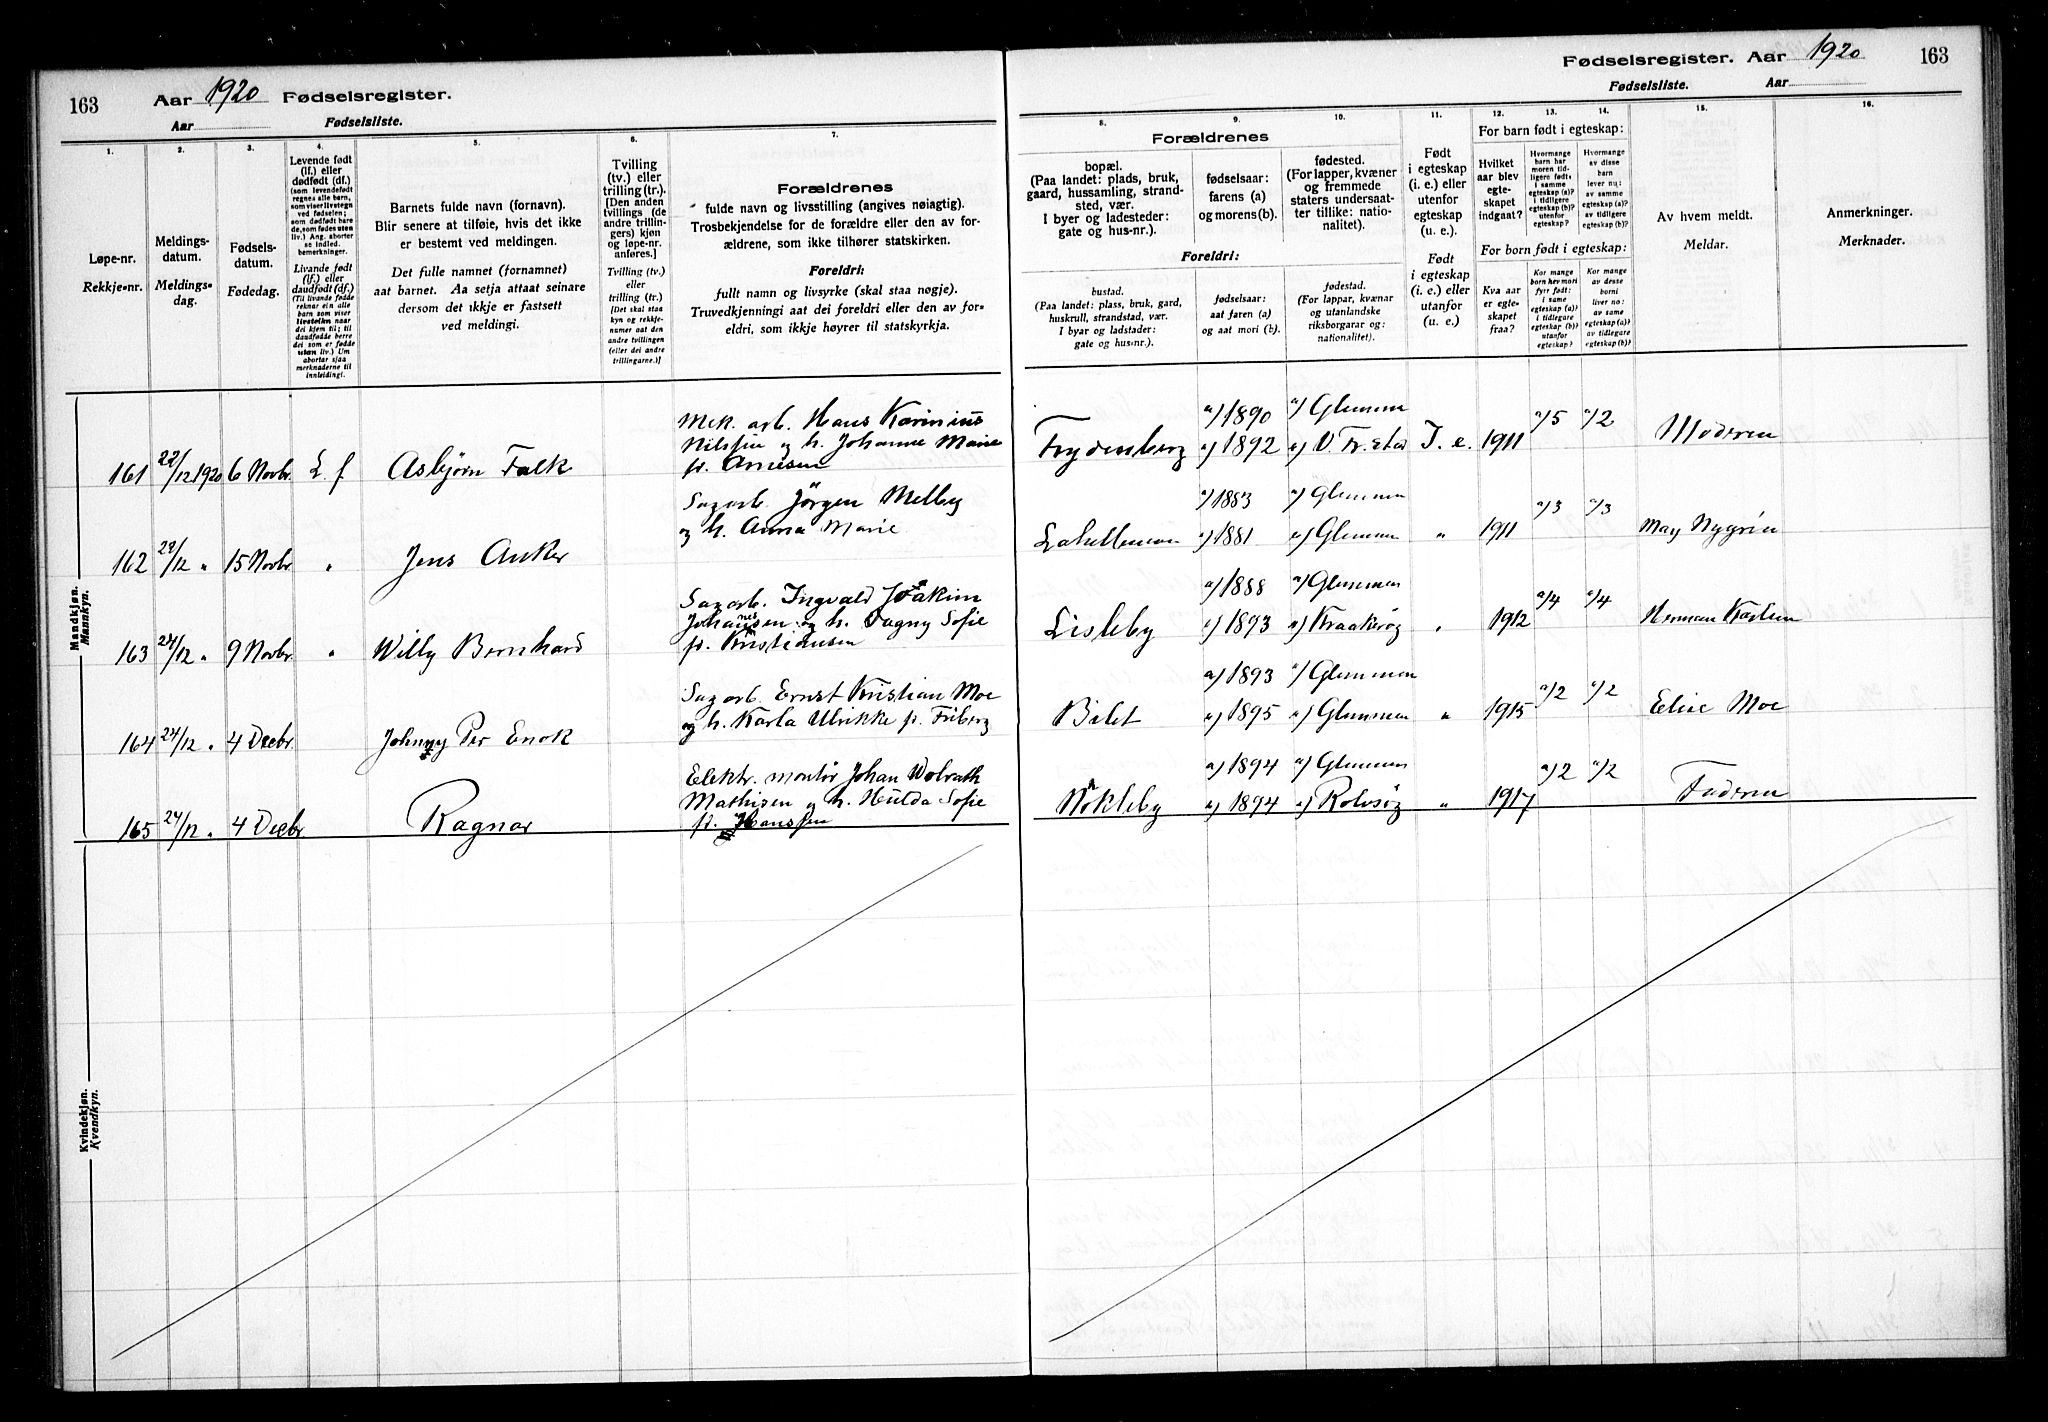 163
Aar 1920 Fødselsregister.
Aar Fødselsliste.
1.
2.
3.
4.
5.
6.
7.
Løpe-nr.
Rekkje-nr.
Meldings-
datum.
Meldings-
dag.
Fødsels-
datum.
Fødedag.
Levende født
(lf.) eller
dødfødt (df.)
(som levendefødt
regnes alle barn,
som viser livstegn
ved fødselen;
som dødfødt bare
de, som fødes uten
liv.) Ang. aborter
se indled.
bemerkninger.
Livande født
(lf.) eller
daudfødt (df.)
(Til livande fødde
reknar ein alle
barn som viser
livsteikn naar
dei kjem til; til
daudfødde berre
dei som er fødde
utan liv.) Um
abortar sjaa
merknaderne til
innleidingi.
Barnets fulde navn (fornavn).
Blir senere at tilføie, hvis det ikke
er bestemt ved meldingen.
Det fulle namnet (fornamnet)
aat barnet. Aa setja attaat seinare
dersom det ikkje er fastsett
ved meldingi.
Tvilling
(tv.) eller
trilling (tr.).
[Den anden
tvillings (de
andre trillin-
gers) kjøn
og løpe-nr.
anføres.]
Tvilling (tv.)
eller
trilling (tr.)
[Det skal staa
kyn og rekkje-
numer aat den
andre tvillingen
(eller dei andre
trillingarne.)]
Forældrenes
fulde navn og livsstilling (angives nøiagtig).
Trosbekjendelse for de forældre eller den av for-
ældrene, som ikke tilhører statskirken.
Foreldri:
fullt namn og livsyrke (skal staa nøgje).
Truvedkjenningi aat dei foreldri eller den av for-
eldri, som ikkje høyrer til statskyrkja.
Mandkjøn.
Mannkyn.
161 22/12 1920 6 Novbr. L. f Asbjörn Falk
Mek. arb. Hans Karinius
Nilssen og h. Johanne Marie
f. Arnesen
162 22/12 " 15 Novbr " Jens Anker
Sagarb. Jörgen Melby
og h. Anna Marie
163 24/12 " 9 Novbr " Willy Bernhard
Sagarb. Ingvald Joakim
Johannesen og h. Dagny Sofie
f. Kristiansen
164 24/12 " 4 Decbr. Johnny Per Enok
Sagarb. Ernst Kristian Moe
og h. Karla Ulrikke f. Friberg
165 24/12 " 4 Decbr Ragnar
Elektr. montör Johan Wolrath
Mathisen og h. Hulda Sofie
f. Hanssen
Kvindekjøn.
Kvendkyn.
Fødselsregister. Aar 1920 163
Fødselsliste. Aar
8.
9.
10.
11.
12.
13.
14.
15.
16.
Forældrenes
bopæl.
(Paa landet: plads, bruk,
gaard, hussamling, strand-
sted, vær.
I byer og ladesteder:
gate og hus-nr.).
fødselsaar:
farens (a)
og morens (b).
fødested.
(For lapper, kvæner
og fremmede
staters undersaat-
ter tillike: natio-
nalitet).
Foreldri:
bustad.
(Paa landet: plass, bruk, gard,
huskrull, strandstad, vær.
I byar og ladstader:
gate og hus-nr.).
fødselsaar:
aat faren (a)
og aat mori (b).
fødestad.
(For lappar, kvænar
og utanlandske
riksborgarar og:
nationalitet).
Født
i egteskap
(i. e.) eller
utenfor
egteskap
(u. e.).
Født
i egteskap
(i. e.) eller
utanfor
(u. e.).
For barn født i egteskap:
Hvilket
aar blev
egte-
skapet
indgaat?
Hvormange
barn har
moren tid-
ligere født:
i samme
egteskap (a)?
i tidligere
egteskap (b)?
utenfor
egteskap?
Hvormange
av disse
barn
lever nu:
av samme
egteskap (a)?
av tidligere
egteskap (b)?
For born født i egteskap:
Kva aar
er egte-
skapet
fraa?
Kor mange
born hev mori
fyrr født:
i same
egteskap (a)?
i tidlegare
egteskap (b)?
utanfor
egteskap?
Kor mange
av desse
borni
liver no:
av same
egteskap (a)?
av tidlegare
egteskap (b)?
Av hvem meldt.
Meldar.
Anmerkninger.
Merknader.
Frydenberg a) 1890 a) Glemmen
b) 1892 b) V. Fr.stad I. e. 1911 a/5 a/2 Moderen
a) 1883 a) Glemmen
b) 1881 b) Glemmen " 1911 a/3 a/3 May Nygrén
Lisleby a) 1888 a) Glemmen
b) 1893 b) Kraakerøy " 1912 a/4 a/4 Herman Karlsen
Bilet a) 1893 a) Glemmen
b) 1895 b) Glemmen " 1915 a/2 a/2 Elise Moe
Nökleby a) 1894 a) Glemmen
b) 1894 b) Rolvsøy " 1917 a/2 a/2 Faderen